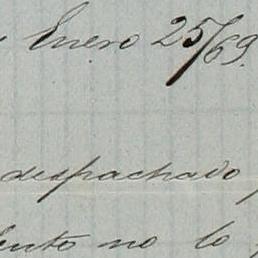 Enero 25/69.
despachado
ento no lo